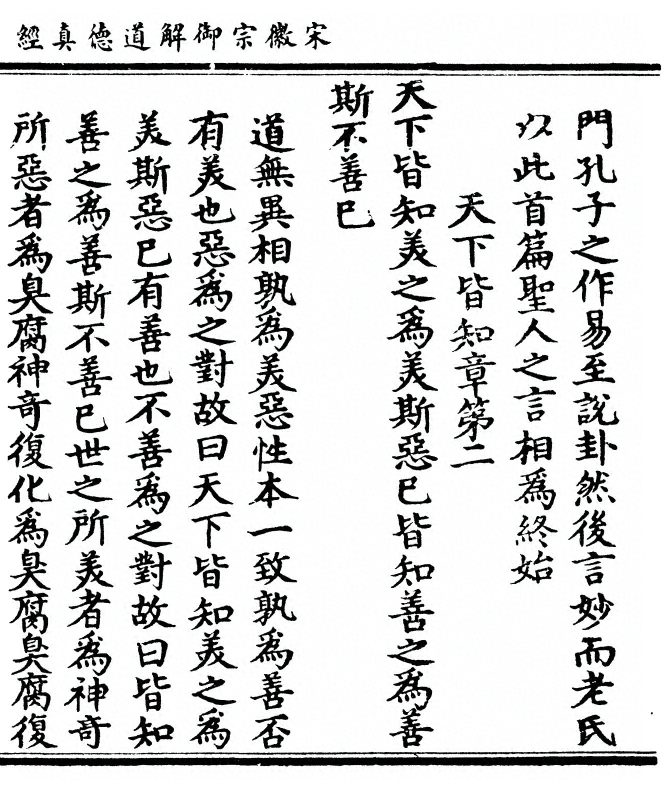 宋徽宗御解道德真經
門孔子之作易至說卦然後言妙而老氏
以此首篇聖人之言相為終始
天下皆知章第二
天下皆知美之為美斯惡已皆知善之為善
斯不善已
道無異相孰為美惡性本一致孰為善否
有美也惡為之對故曰天下皆知美之為
美斯惡已有善也不善為之對故曰皆知
善之為善斯不善已世之所美者為神奇
所惡者為臭腐神奇復化為臭腐臭腐復